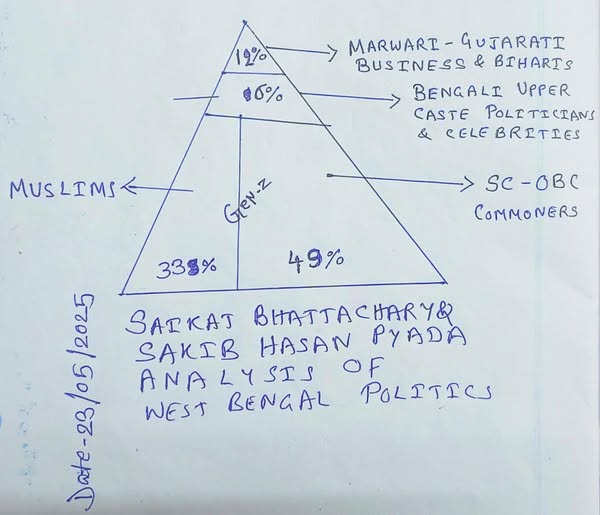 12%
MARWARI - GUJARATI
BUSINESS & BIHARIS
6%
BENGALI UPPER
CASTE POLITICIANS
& CELEBRITIES
MUSLIMS
Gen-Z
SC-OBC
COMMONERS
33%
49%
SAIKAT BHATTACHARY &
SAKIB HASAN PYADA
ANALYSIS OF
WEST BENGAL POLITICS
Date-23/05/2025